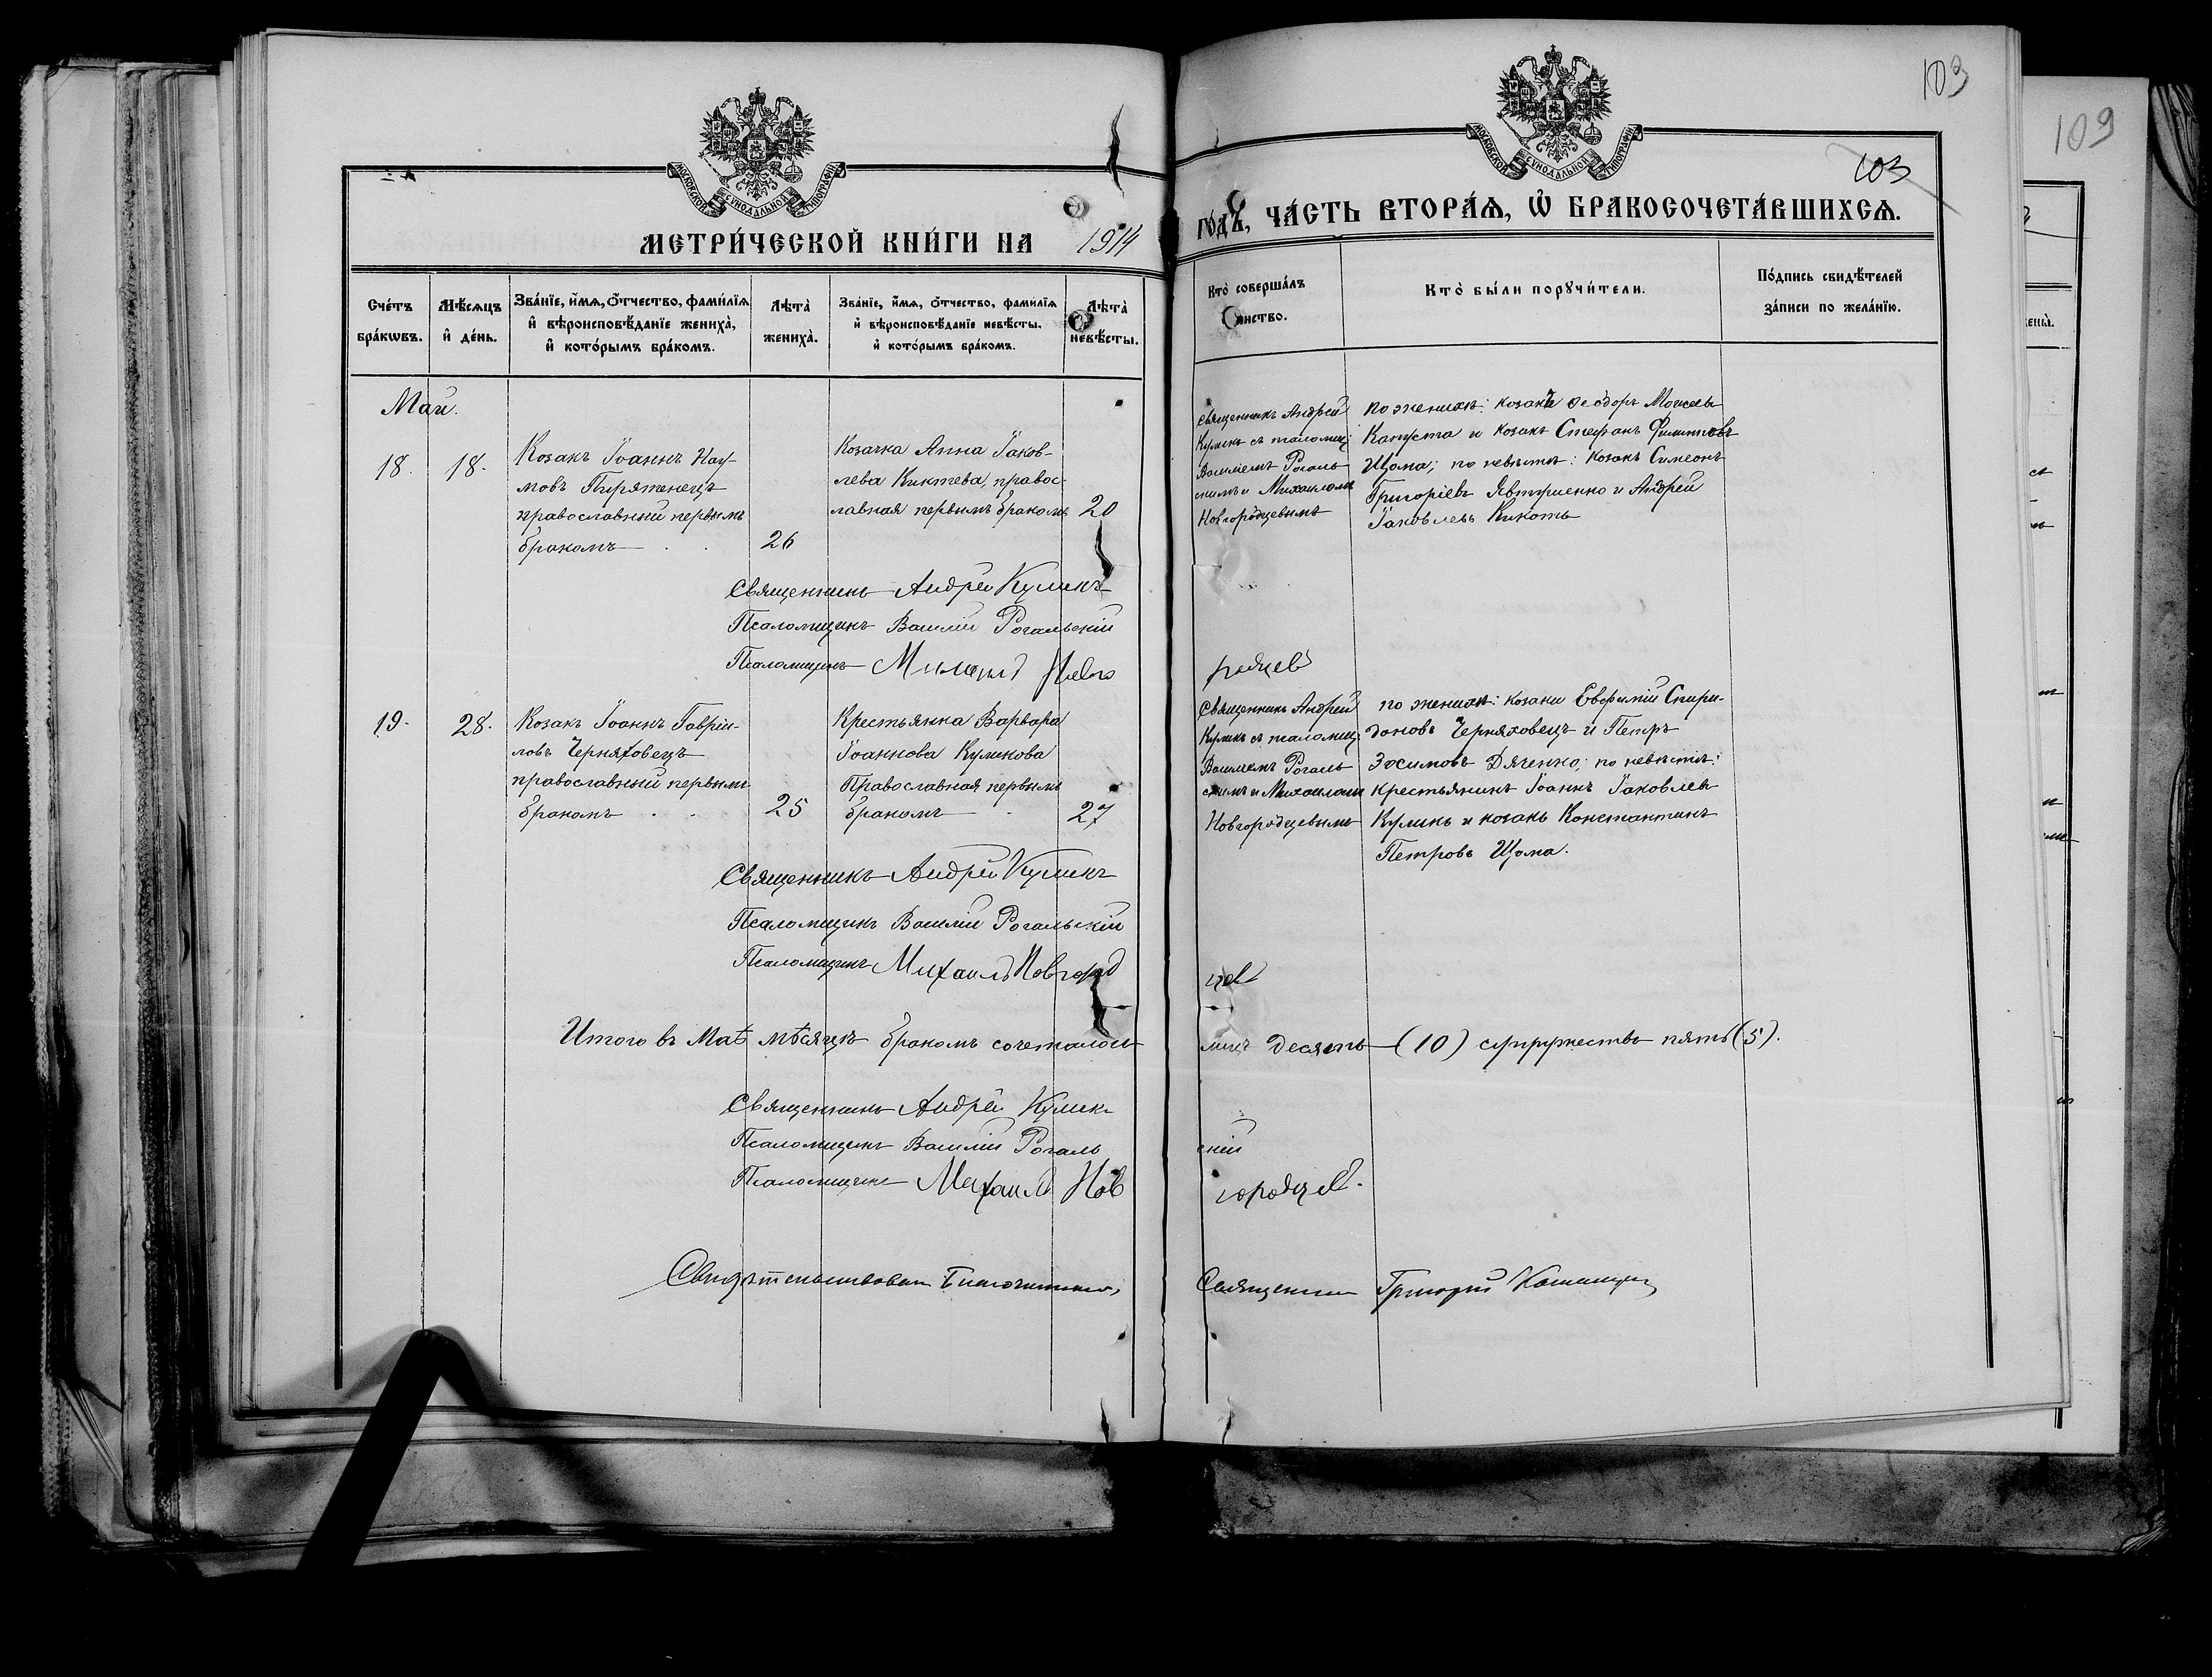 103
109
103
МОСКОВСКОЙ СѴНОДАЛЬНОЙ ТИПОГРАФІИ
МОСКОВСКОЙ СѴНОДАЛЬНОЙ ТИПОГРАФІИ
МЕТРИ́ЧЕСКОЙ КНИ́ГИ НА 1914
ГОДЪ, ЧА́СТЬ ВТОРА́Ѧ, Ѽ БРАКОСОЧЕТА́ВШИХСѦ.
Сче́тъ
бра́кѡвъ.
Мѣ́сѧцъ
и҆ де́нь.
Зва́нїе, и҆́мѧ, ѻ҆́тчество, фами́лїѧ
и҆ вѣроисповѣ́данїе жениха̀,
и҆ кото́рымъ бра́комъ.
Лѣта̀
жениха̀.
Зва́нїе, и҆́мѧ, ѻ҆́тчество, фами́лїѧ
и҆ вѣроисповѣ́данїе невѣ́сты.
и҆ кото́рымъ бра́комъ.
Лѣта̀
невѣ́сты.
Кто̀ соверша́лъ
таинство.
Кто̀ бы́ли порꙋчи́тели.
По́дпись свидѣ́телей
за́писи по жела́нїю.
Май.
18.
18.
Козакъ Іоаннъ Нау-
мовъ Пирятенецъ
православный первымъ
бракомъ
26
Козачка Анна Іаков-
лева Киктева, правос-
лавная первымъ бракомъ
20
Священникъ Андрей
Куликъ съ псаломщ:
Василіемъ Рогаль
скимъ и Михаиломъ
Новгородцевымъ
по женихѣ: козаки Ѳеодоръ Моисеевъ
Капуста и козакъ Стефанъ Филипповъ
Щома; по невѣстѣ: козакъ Симеонъ
Григоріевъ Явтушенко и Андрей
Іаковлевъ Кикоть
Священникъ Андрей Куликъ
Псаломщикъ Василій Рогальскій
Псаломщикъ Михаилъ Новго
родцев
19.
28.
Козакъ Іоаннъ Гавріи-
ловъ Черняховецъ
православный первымъ
бракомъ
25
Крестьянка Варвара
Іоаннова Куликова
Православная первымъ
бракомъ
27
Священникъ Андрей
Куликъ съ псаломщ:
Василіемъ Рогаль
скимъ и Михаиломъ
Новгородцевымъ
по женихѣ: козаки Евфимій Спири-
доновъ Черняховецъ и Петръ
Зосимовъ Дяченко; по невѣстѣ:
крестьянинъ Іоаннъ Іаковлевъ
Куликъ и козакъ Константинъ
Петровъ Щома.
Священникъ Андрей Куликъ
Псаломщикъ Василій Рогальскій
Псаломщикъ Михаилъ Новгород
цев
Итого въ Маѣ мѣсяцѣ бракомъ сочеталось
лицъ десять (10) супружествъ пять (5).
Священникъ Андрей Куликъ
Псаломщикъ Василій Рогаль
скій
Псаломщикъ Михаилъ Нов
городцев.
Свидѣтельствовалъ Благочинный,
Священникъ Григорій